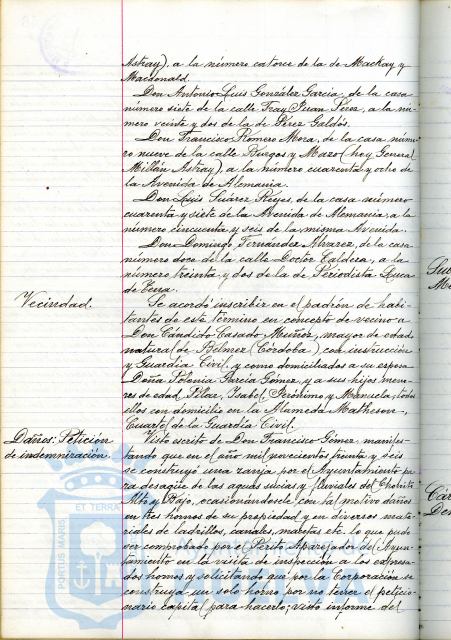 Astray), a la número catorce de la de Mackay y
Macdonald.
Don Antonio Luis González García, de la casa
número siete de la calle Fray Juan Pérez, a la nú-
mero veinte y dos de la de Pérez Galdós.
Don Francisco Romero Mora, de la casa núme-
ro nueve de la calle Burgos y Mazo (hoy General
Millán Astray), a la número cuarenta y ocho de
la Avenida de Alemania.
Don Luis Suárez Reyes, de la casa número
cuarenta y siete de la Avenida de Alemania, a la
número cincuenta y seis de la misma Avenida.
Don Domingo Fernández Alvarez, de la casa
número doce de la calle Doctor Caldera, a la
número treinta y dos de la de Periodista Luca
de Tena.
Vecindad.
Se acordó inscribir en el padrón de habi-
tantes de este término en concepto de vecino a
Don Cándido Casado Muñoz, mayor de edad
natural de Belmez (Córdoba) con instrucción
y Guardia Civil, y como domiciliados a su esposa
Doña Polonia García Gómez, y a sus hijos meno-
res de edad Pilar, Isabel, Jerónimo y Manuela, todos
ellos con domicilio en la Alameda Matheson,
Cuartel de la Guardia Civil.
Daños: Petición
de indemnización.
Visto escrito de Don Francisco Gómez manifes-
tando que en el año mil novecientos treinta y seis
se construyó una zanja por el Ayuntamiento pa-
ra desagüe de las aguas sucias y fluviales del Chorrito
Alto y Bajo, ocasionándosele con tal motivo daños
en tres hornos de su propiedad y en diversos mate-
riales de ladrillos, canales, maretas etc. lo que pudo
ser comprobado por el Perito Aparejador del Ayun-
tamiento en la visita de inspección a los expresa-
dos hornos y solicitando que por la Corporación se
construya un solo horno por no tener el peticio-
nario capital para hacerlo; visto informe del
PORTUS MARIS
ET TERRÆ